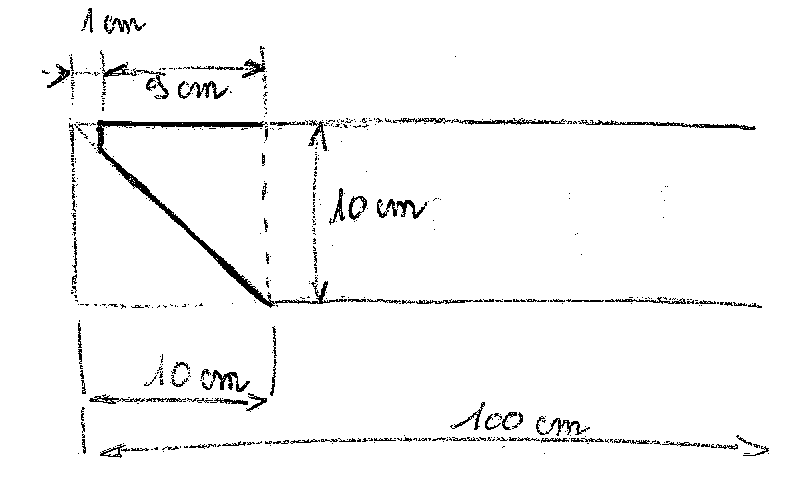 1 cm
9 cm
10 cm
10 cm
100 cm